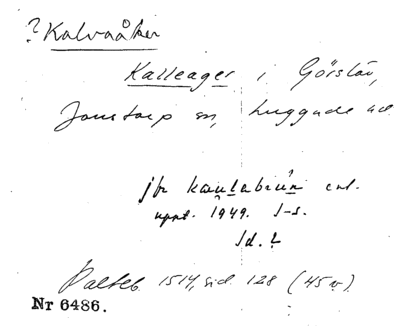 ? Kalvaåker
Kalleager i Görslöv,
Jonstorp sn, Luggude hd
jfr kaulabrun enl.
uppt. 1949. J-s.
Id. ?
Palteb. 1514, sid. 128 (45 v).
Nr 6486.